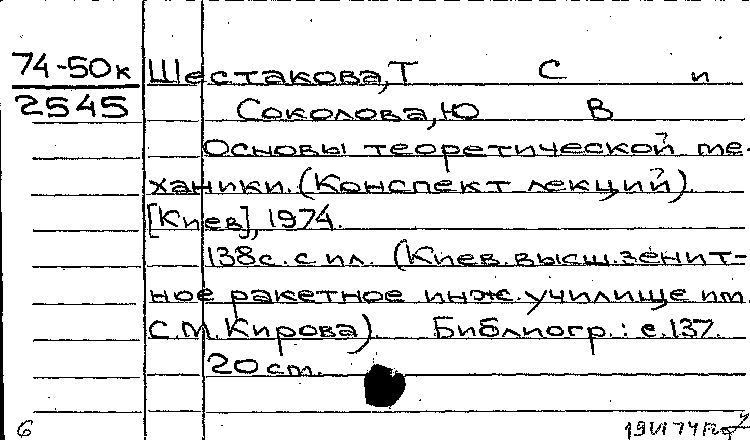 74-50к
2545
Шестакова, Т С и
Соколова, Ю В
Основы теоретической ме-
ханики. (Конспект лекций).
[Киев], 1974.
138с. с ил. (Киев. высш. зенит-
ное ракетное инж. училище им.
С.М. Кирова). Библиогр.: с.137.
20 см.
6